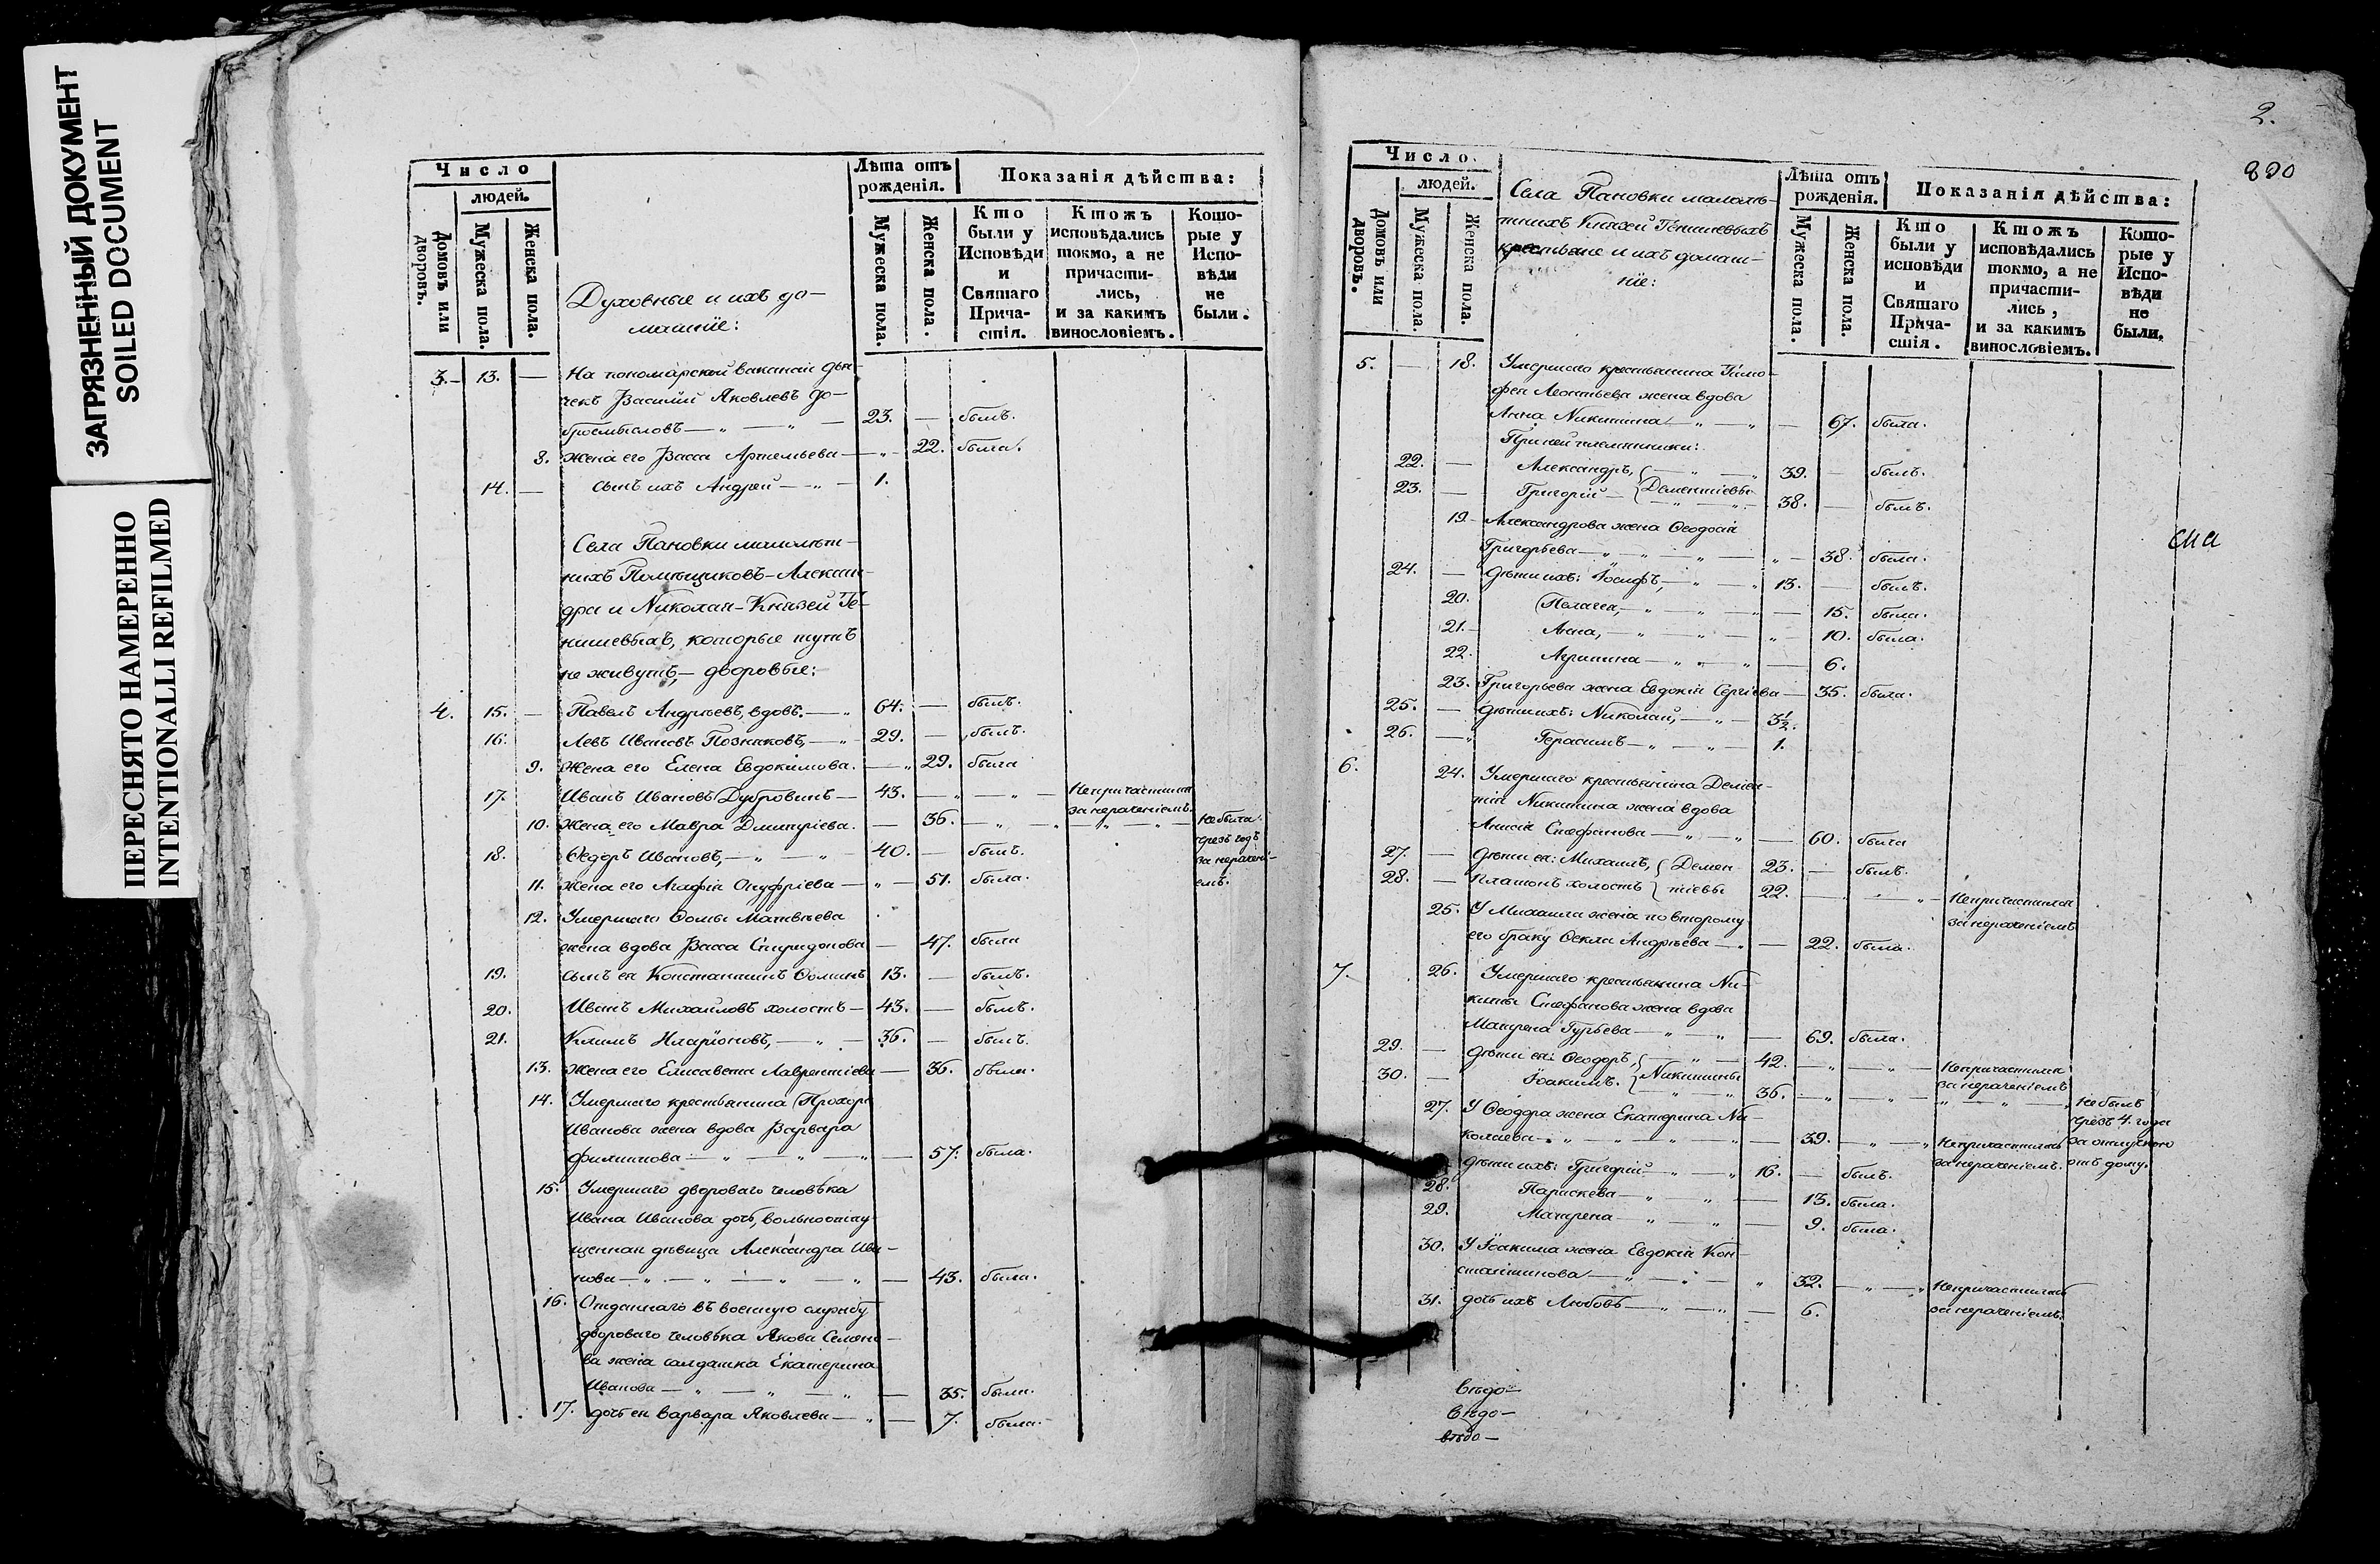 ЗАГРЯЗНЕННЫЙ ДОКУМЕНТ
SOILED DOCUMENT
ПЕРЕСНЯТО НАМЕРЕННО
INTENTIONALLI REFILMED
Число
людей.
Домовъ или дворовъ.
Мужеска пола.
Женска пола.
Духовные и ихъ до-
машніе:
Лѣта отъ рожденія.
Мужеска пола.
Женска пола.
Показанія дѣйства:
Кто были у Исповѣди и Святаго Прича-стія.
Ктожъ исповѣдались токмо, а не причасти-лись, и за какимъ винословіемъ.
Кото-рые у Испо-вѣди не были.
3. 13. — На пономарской вакансіи дья-
чекъ Василій Яковлевъ До-
бросмысловъ — 23. — былъ.
8. жена его Васса Артемьева — 22. была.
14. — сынъ ихъ Андрей — 1.
Села Пановки малолѣт-
нихъ Помѣщиковъ – Алексан-
дра и Николая – Князей Те-
нишевыхъ, которые тутъ
не живутъ, – дворовые:
4. 15. — Павелъ Андреевъ, вдовъ. — 64. — былъ.
16. Левъ Ивановъ Позняковъ, — 29. — былъ.
9. Жена его Елена Евдокимова. — 29. была
17. Иванъ Ивановъ Дубровинъ — 43. — Непричастился
за нераченіемъ.
10. Жена его Мавра Димитріева. — 36. — не была
чрезъ годъ
за нерачені-
емъ.
18. Ѳедоръ Ивановъ, — 40. — былъ.
11. жена его Агафія Онуфріева — 51. была.
12. Умершаго Ѳомы Матвѣева
жена вдова Васса Спиридонова — 47. была
19. сынъ ея Константинъ Ѳоминъ 13. — былъ.
20. Иванъ Михайловъ холостъ — 43. — былъ.
21. Климъ Иларіоновъ, — 36. — былъ.
13. жена его Елисавета Лаврентіева — 36. была.
14. Умершаго крестьянина Прохора
Иванова жена вдова Варвара
Филиппова — 57. была.
15. Умершаго двороваго человѣка
Ивана Иванова дочь, вольноотпу-
щенная дѣвица Александра Ива-
нова — 43. была.
16. Отданнаго въ военную службу
двороваго человѣка Якова Семено-
ва жена солдатка Екатерина
Иванова — 35. была.
17. дочь ея Варвара Яковлева — 7. была.
2.
890
Число
людей.
Домовъ или дворовъ.
Мужеска пола.
Женска пола.
Села Пановки малолѣ-
тнихъ Князей Тенишевыхъ
крестьяне и ихъ домаш-
ніе:
Лѣта отъ рожденія.
Мужеска пола.
Женска пола.
Показанія дѣйства:
Кто были у исповѣди и Святаго Прича-стія.
Ктожъ исповѣдались токмо, а не причасти-лись, и за какимъ винословіемъ.
Кото-рые у Испо-вѣди не были.
5. — 18. Умершаго крестьянина Тимо-
фея Леонтьева жена вдова
Анна Никитина — 67. была.
При ней племянники:
22. — Александръ, — 39. — былъ.
23. — Григорій — Дементіевы 38. — былъ.
19. Александрова жена Ѳеодосія
Григорьева — 38. была.
24. — дѣти ихъ: Іосифъ, — 13. — былъ.
20. Пелагея, — 15. была.
21. Анна, — 10. была.
22. Агрипина — 6.
23. Григорьева жена Евдокія Сергіева — 35. была.
25. — дѣти ихъ: Николай, — 3½.
26. — Герасимъ — 1.
6. 24. Умершаго крестьянина Демен-
тія Никитина жена вдова
Анисія Стефанова — 60. была
27. — дѣти ея: Михаилъ, Демен- 23. — былъ.
28. — Платонъ холостъ тіевы 22. — Непричастился
за нераченіемъ
25. У Михаила жена по второму
его браку Ѳекла Андреева — 22. была.
7. 26. Умершаго крестьянина Ни-
киты Стефанова жена вдова
Матрена Гурьева — 69. была.
29. — дѣти ея: Ѳеодоръ, — 42. — Непричастился
за нераченіемъ
30. — Іоакимъ. Никитины 36. — не былъ
чрезъ 4. года
за отлучкою
отъ дому.
27. У Ѳеодора жена Екатерина Ни-
колаева — 39. — Непричастилась
за нераченіемъ.
дѣти ихъ: Григорій — 16. — былъ.
28. Параскева — 13. была.
29. Матрена — 9. была.
30. У Іоакима жена Евдокія Кон-
стантинова — 32. — Непричастилась
за нераченіемъ.
31. дочь ихъ Любовь — 6.
вѣдо—
вѣдо—
вѣдо—